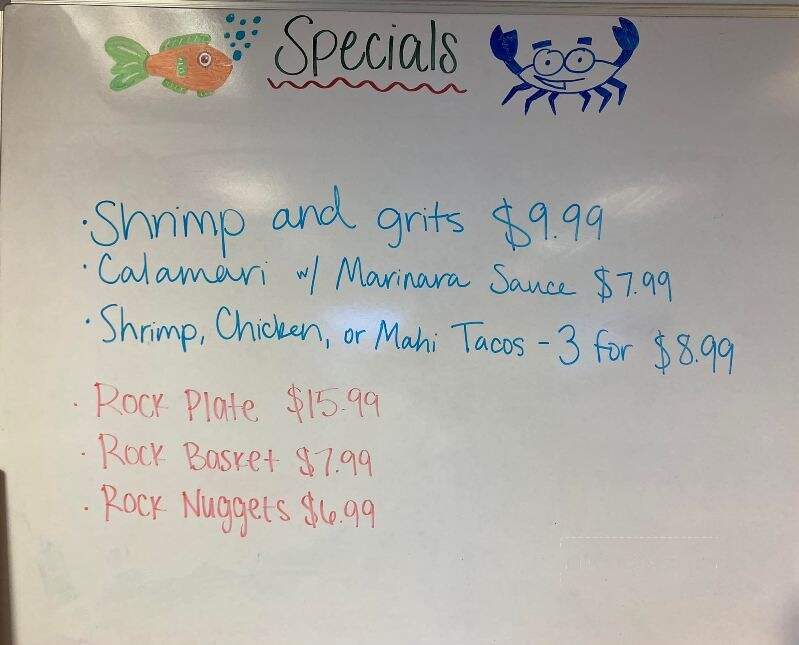 Specials
· Shrimp and grits $9.99
· Calamari w/ Marinara Sauce $7.99
· Shrimp, Chicken, or Mahi Tacos - 3 for $8.99
· Rock Plate $15.99
· Rock Basket $7.99
· Rock Nuggets $6.99